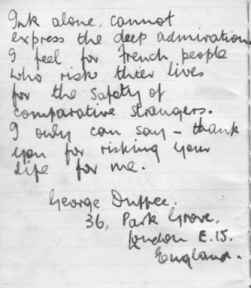 Ink alone, cannot
express the deep admiration
I feel for french people
who risk their lives
for the safety of
comparative strangers.
I only can say - thank
you for risking your
life for me.
George Duffee.
36, Park Grove,
London E.15.
England.